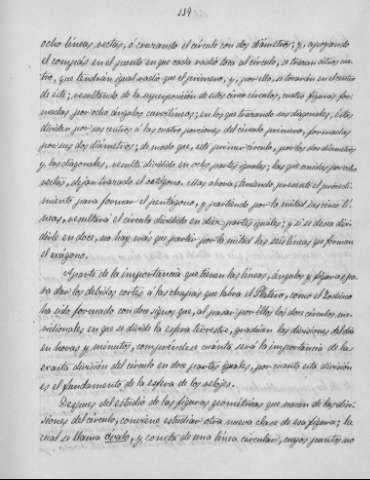 119
ocho líneas rectas, ó cruzando el círculo con dos diámetros; y, apoyando
el compás en el punto en que cada radio toca al círculo, se trazan otros cua-
tro, que tendrán igual radio que el primero, y, por ello, se tocarán en el centro
de éste; resultando de la superposición de estos cinco círculos, cuatro figuras for-
madas por ocho ángulos curvilíneos; en los que trazando sus diagonales, éstas
dividen por sus centros á las cuatro porciones del círculo primero, formadas
por sus dos diámetros; de modo que, este primer círculo, por los dos diámetros
y las diagonales, resulta dividido en ocho partes iguales; las que unidas por ocho
rectas, dejan trazado el octógono. Mas ahora, teniendo presente el procedi-
miento para formar el pentágono, y partiendo por la mitad sus cinco lí-
neas, resultará el círculo dividido en diez partes iguales; y si se desea divi-
dirle en doce, no hay más que partir por la mitad las seis líneas que forman
el exágono.
Aparte de la importancia que tienen las líneas, ángulos y figuras pa-
ra dar los debidos cortes á las chapas que labra el Platero, como el Zodiaco
ha sido formado con doce signos que, al pasar por ellos los doce círculos me-
ridionales en que se divide la esfera terrestre, gradúan las divisiones del día
en horas y minutos, compréndese cuánta será la importancia de la
exacta división del círculo en doce partes iguales, por cuanto esta división
es el fundamento de la esfera de los relojes.
Despues del estudio de las figuras geométricas que nacen de las divi-
siones del círculo, conviene estudiar otra nueva clase de esa figura; la
cual se llama óvalo, y consta de una línea circular, cuyos puntos no